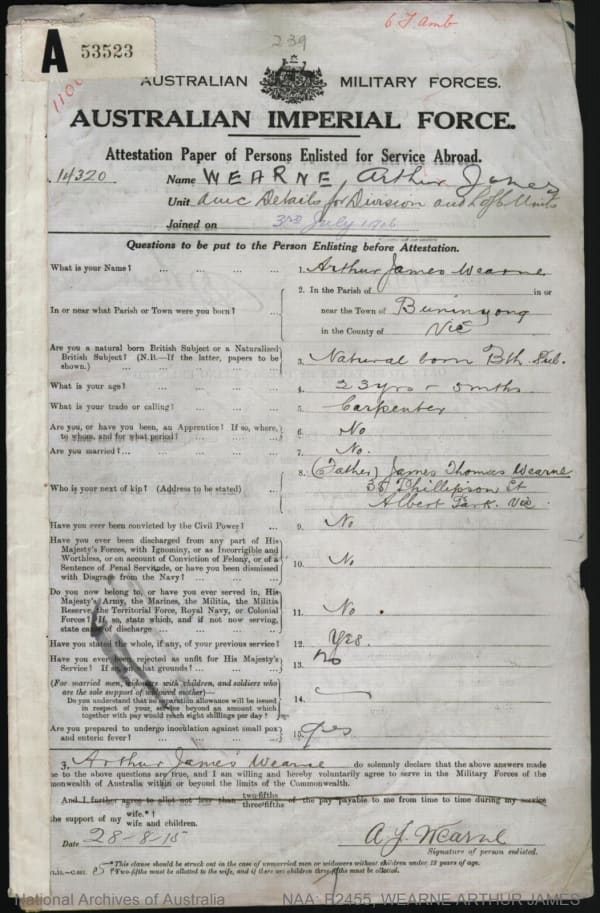 6 F. Amb
A 53523
239
AUSTRALIAN MILITARY FORCES.
AUSTRALIAN IMPERIAL FORCE.
Attestation Paper of Persons Enlisted for Service Abroad.
14320 Name WEARNE Arthur James
Unit amc Details for Division and L of C Units
Joined on 3rd July 1916
Questions to be put to the Person Enlisting before Attestation.
What is your Name? ... ... ... ... 1. Arthur James Wearne
2. In the Parish of in or
In or near what Parish or Town were you born? ... near the Town of Buninyong
in the County of Vic
Are you a natural born British Subject or a Naturalized
British Subject? (N.B.—If the latter, papers to be
shown.) ... ... ... ... 3. Natural born Bth. Sub.
What is your age? ... ... ... 4. 23 yrs - 5 mths
What is your trade or calling? ... ... ... 5. Carpenter
Are you, or have you been, an Apprentice? If so, where,
to whom, and for what period? ... ... 6. No
Are you married?... ... ... ... 7. No.
8. (Father) James Thomas Wearne
Who is your next of kin? (Address to be stated) ... 38 Phillipson St
Albert Park. Vic
Have you ever been convicted by the Civil Power? ... 9. No
Have you ever been discharged from any part of His
Majesty's Forces, with Ignominy, or as Incorrigible and
Worthless, or on account of Conviction of Felony, or of a
Sentence of Penal Servitude, or have you been dismissed
with Disgrace from the Navy? ... ... ... 10. No
Do you now belong to, or have you ever served in, His
Majesty's Army, the Marines, the Militia, the Militia
Reserve, the Territorial Force, Royal Navy, or Colonial
Forces? If so, state which, and if not now serving,
state cause of discharge ... ... ... 11. No
Have you stated the whole, if any, of your previous service? 12. Yes.
Have you ever been rejected as unfit for His Majesty's
Service? If so, on what grounds? ... ... 13. No
(For married men, widowers with children, and soldiers who
are the sole support of widowed mother)—
Do you understand that no separation allowance will be issued
in respect of your service beyond an amount which
together with pay would reach eight shillings per day? 14.
Are you prepared to undergo inoculation against small pox
and enteric fever? ... ... ... ... 15. Yes
I, Arthur James Wearne do solemnly declare that the above answers made
me to the above questions are true, and I am willing and hereby voluntarily agree to serve in the Military Forces of the
monwealth of Australia within or beyond the limits of the Commonwealth.
And I further agree to allot not less than two-fifths three-fifths of the pay payable to me from time to time during my service
the support of my wife.*† wife and children.
Date 28-8-15 A. J. Wearne
Signature of person enlisted.
*This clause should be struck out in the case of unmarried men or widowers without children under 18 years of age.
† Two-fifths must be allotted to the wife, and if there are children three-fifths must be allotted.
National Archives of Australia NAA: B2455, WEARNE ARTHUR JAMES